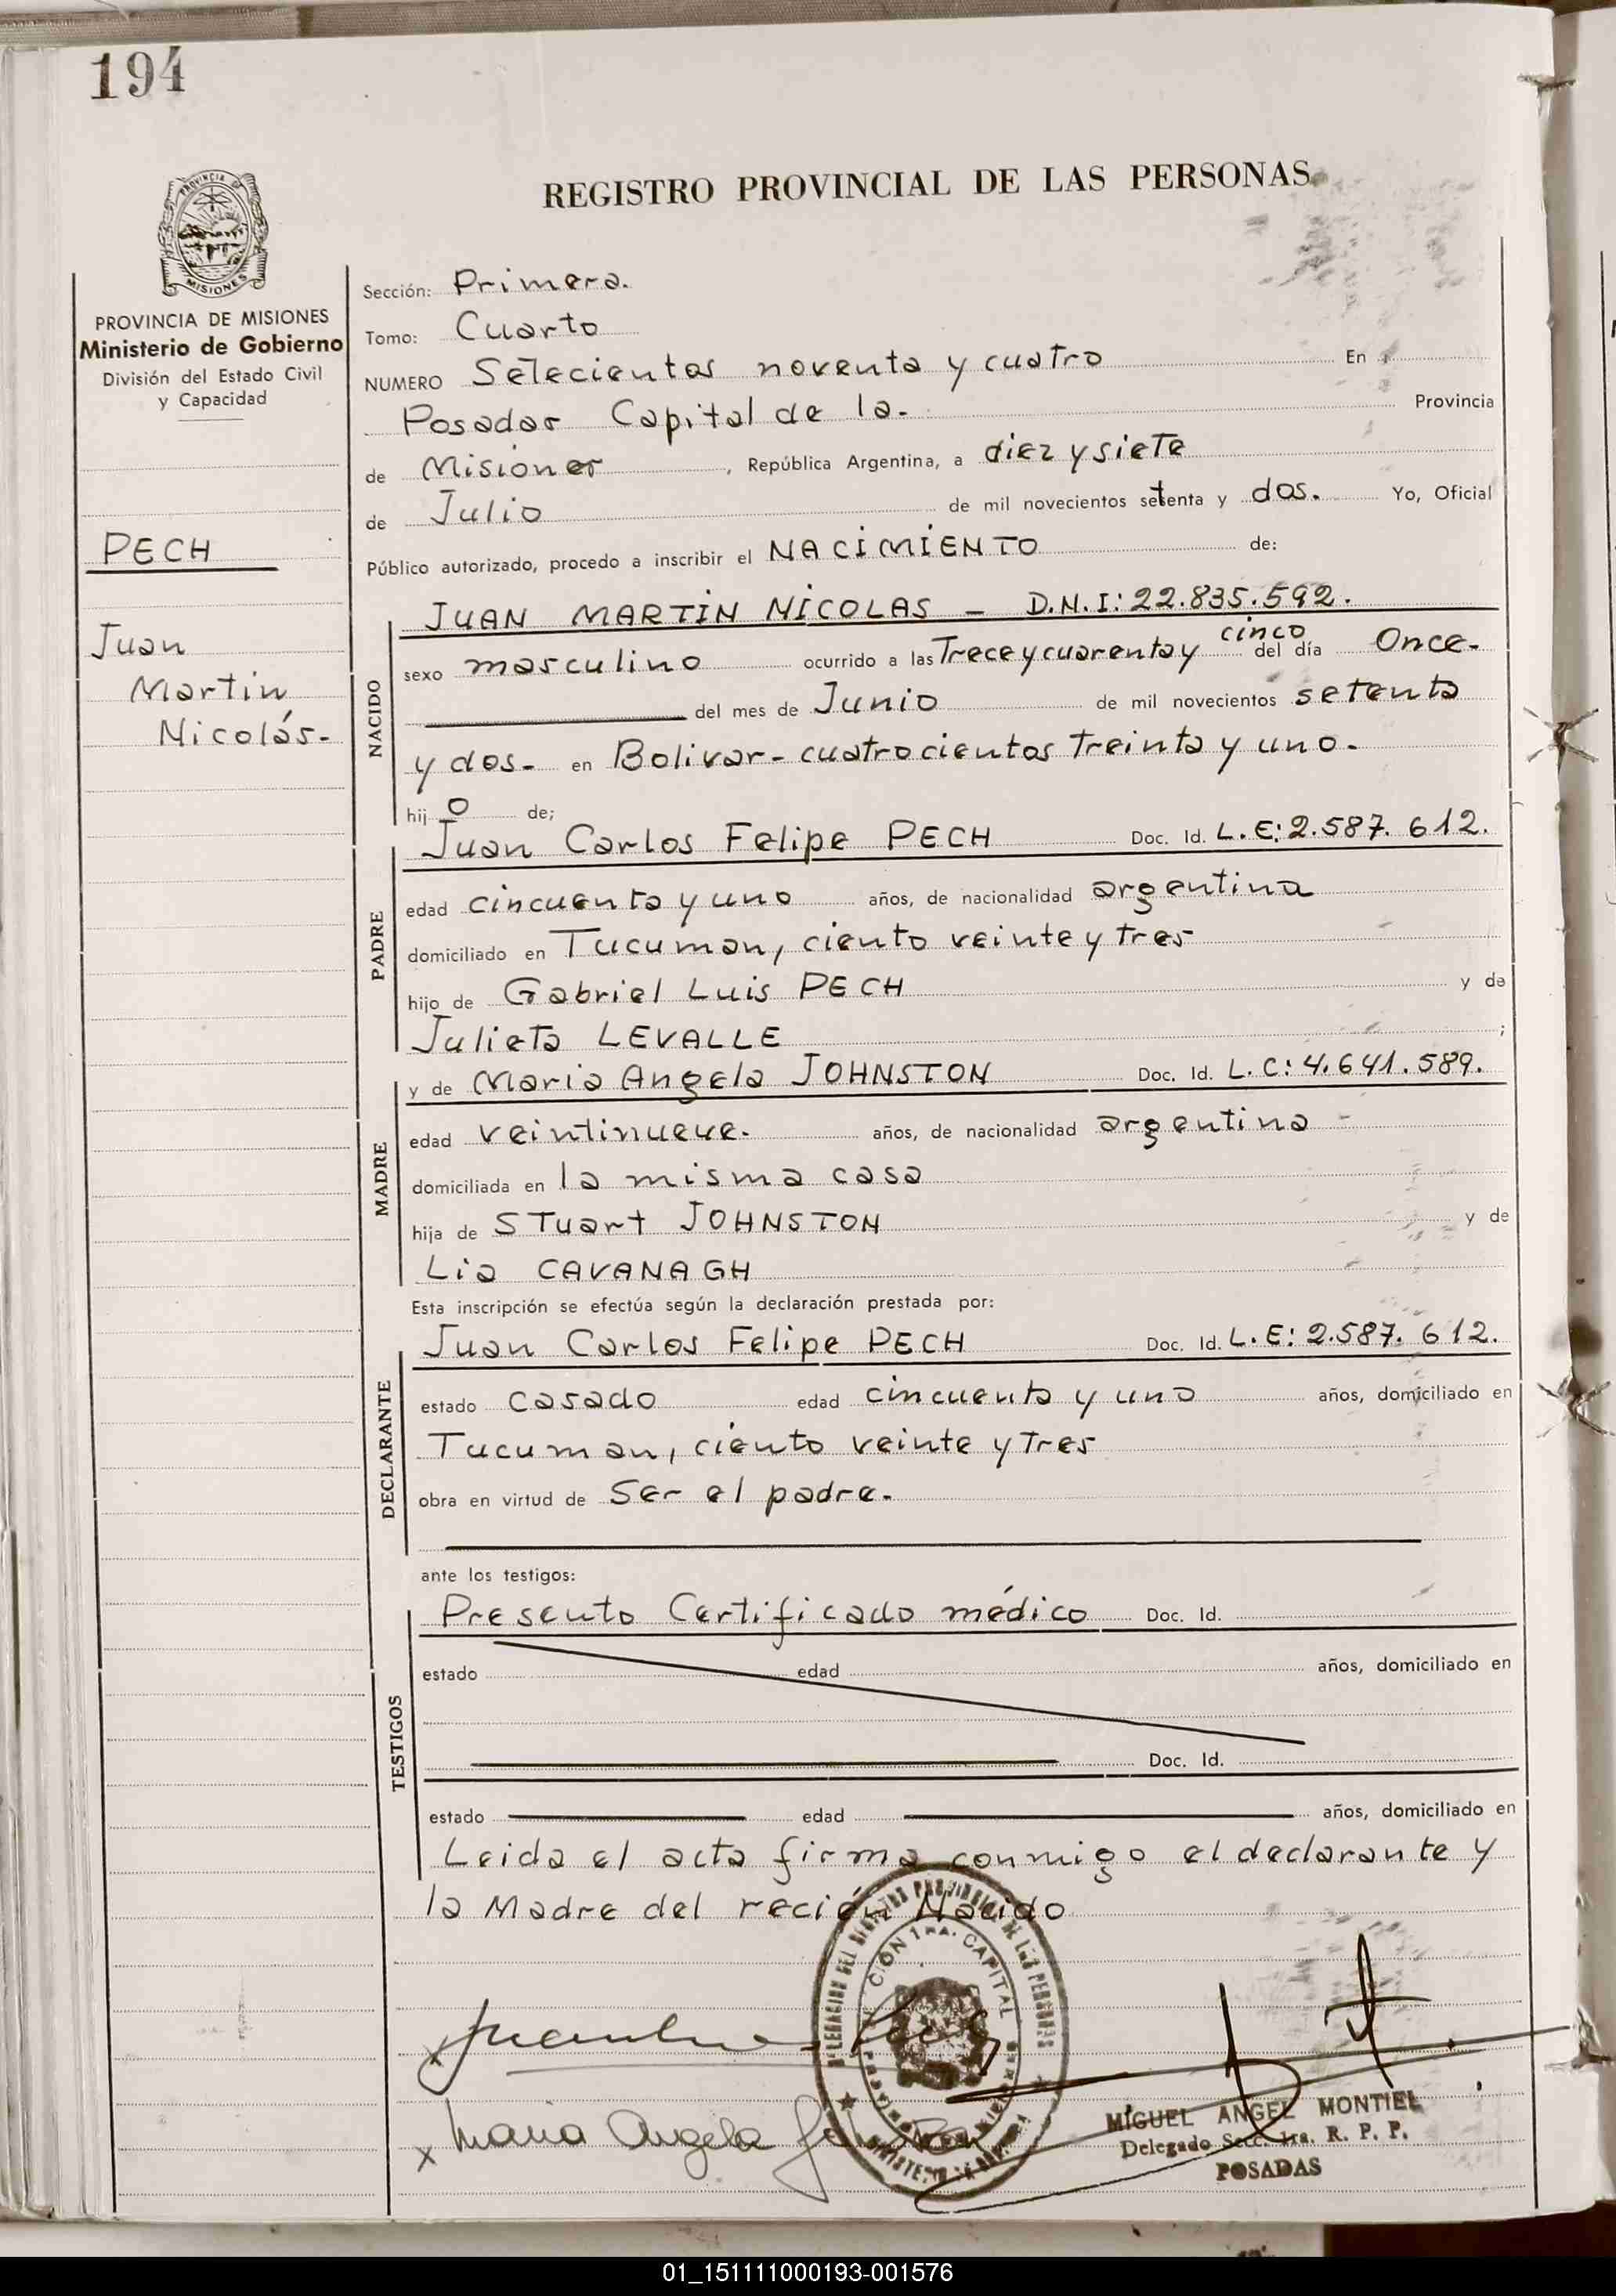 194
REGISTRO PROVINCIAL DE LAS PERSONAS
PROVINCIA DE
MISIONES
PROVINCIA DE MISIONES
Ministerio de Gobierno
División del Estado Civil
y Capacidad
PECH
Juan
Martin
Nicolás-
Sección: Primera.
Tomo: Cuarto
NUMERO Setecientos noventa y cuatro En
Posadas Capital de la. Provincia
de Misiones, República Argentina, a diez y siete
de Julio de mil novecientos setenta y dos. Yo, Oficial
Público autorizado, procedo a inscribir el NACIMIENTO de:
NACIDO
JUAN MARTIN NICOLAS - D.N.I: 22.835.592.
sexo masculino ocurrido a las Trece y cuarenta y cinco del día Once-
del mes de Junio de mil novecientos setenta
y dos- en Bolivar- cuatrocientos Treinta y uno-
hijo de;
PADRE
Juan Carlos Felipe PECH Doc. Id. L.E: 2.587.612.
edad cincuenta y uno años, de nacionalidad argentina
domiciliado en Tucuman, ciento veinte y tres
hijo de Gabriel Luis PECH y de
Julieta LEVALLE ;
MADRE
y de Maria Angela JOHNSTON Doc. Id. L.C: 4.641.589.
edad veintinueve. años, de nacionalidad argentina -
domiciliada en la misma casa
hija de Stuart JOHNSTON y de
Lia CAVANAGH
Esta inscripción se efectúa según la declaración prestada por:
DECLARANTE
Juan Carlos Felipe PECH Doc. Id. L.E: 2.587.612.
estado casado edad cincuenta y uno años, domiciliado en
Tucuman, ciento veinte y tres
obra en virtud de Ser el padre.
ante los testigos:
TESTIGOS
Presento Certificado médico Doc. Id.
estado edad años, domiciliado en
Doc. Id.
estado edad años, domiciliado en
Leida el acta firma conmigo el declarante y
la Madre del recién Nacido
x
x Maria Angela
MIGUEL ANGEL MONTIEL
Delegado Secc. 1ra. R. P. P.
POSADAS
01_151111000193-001576